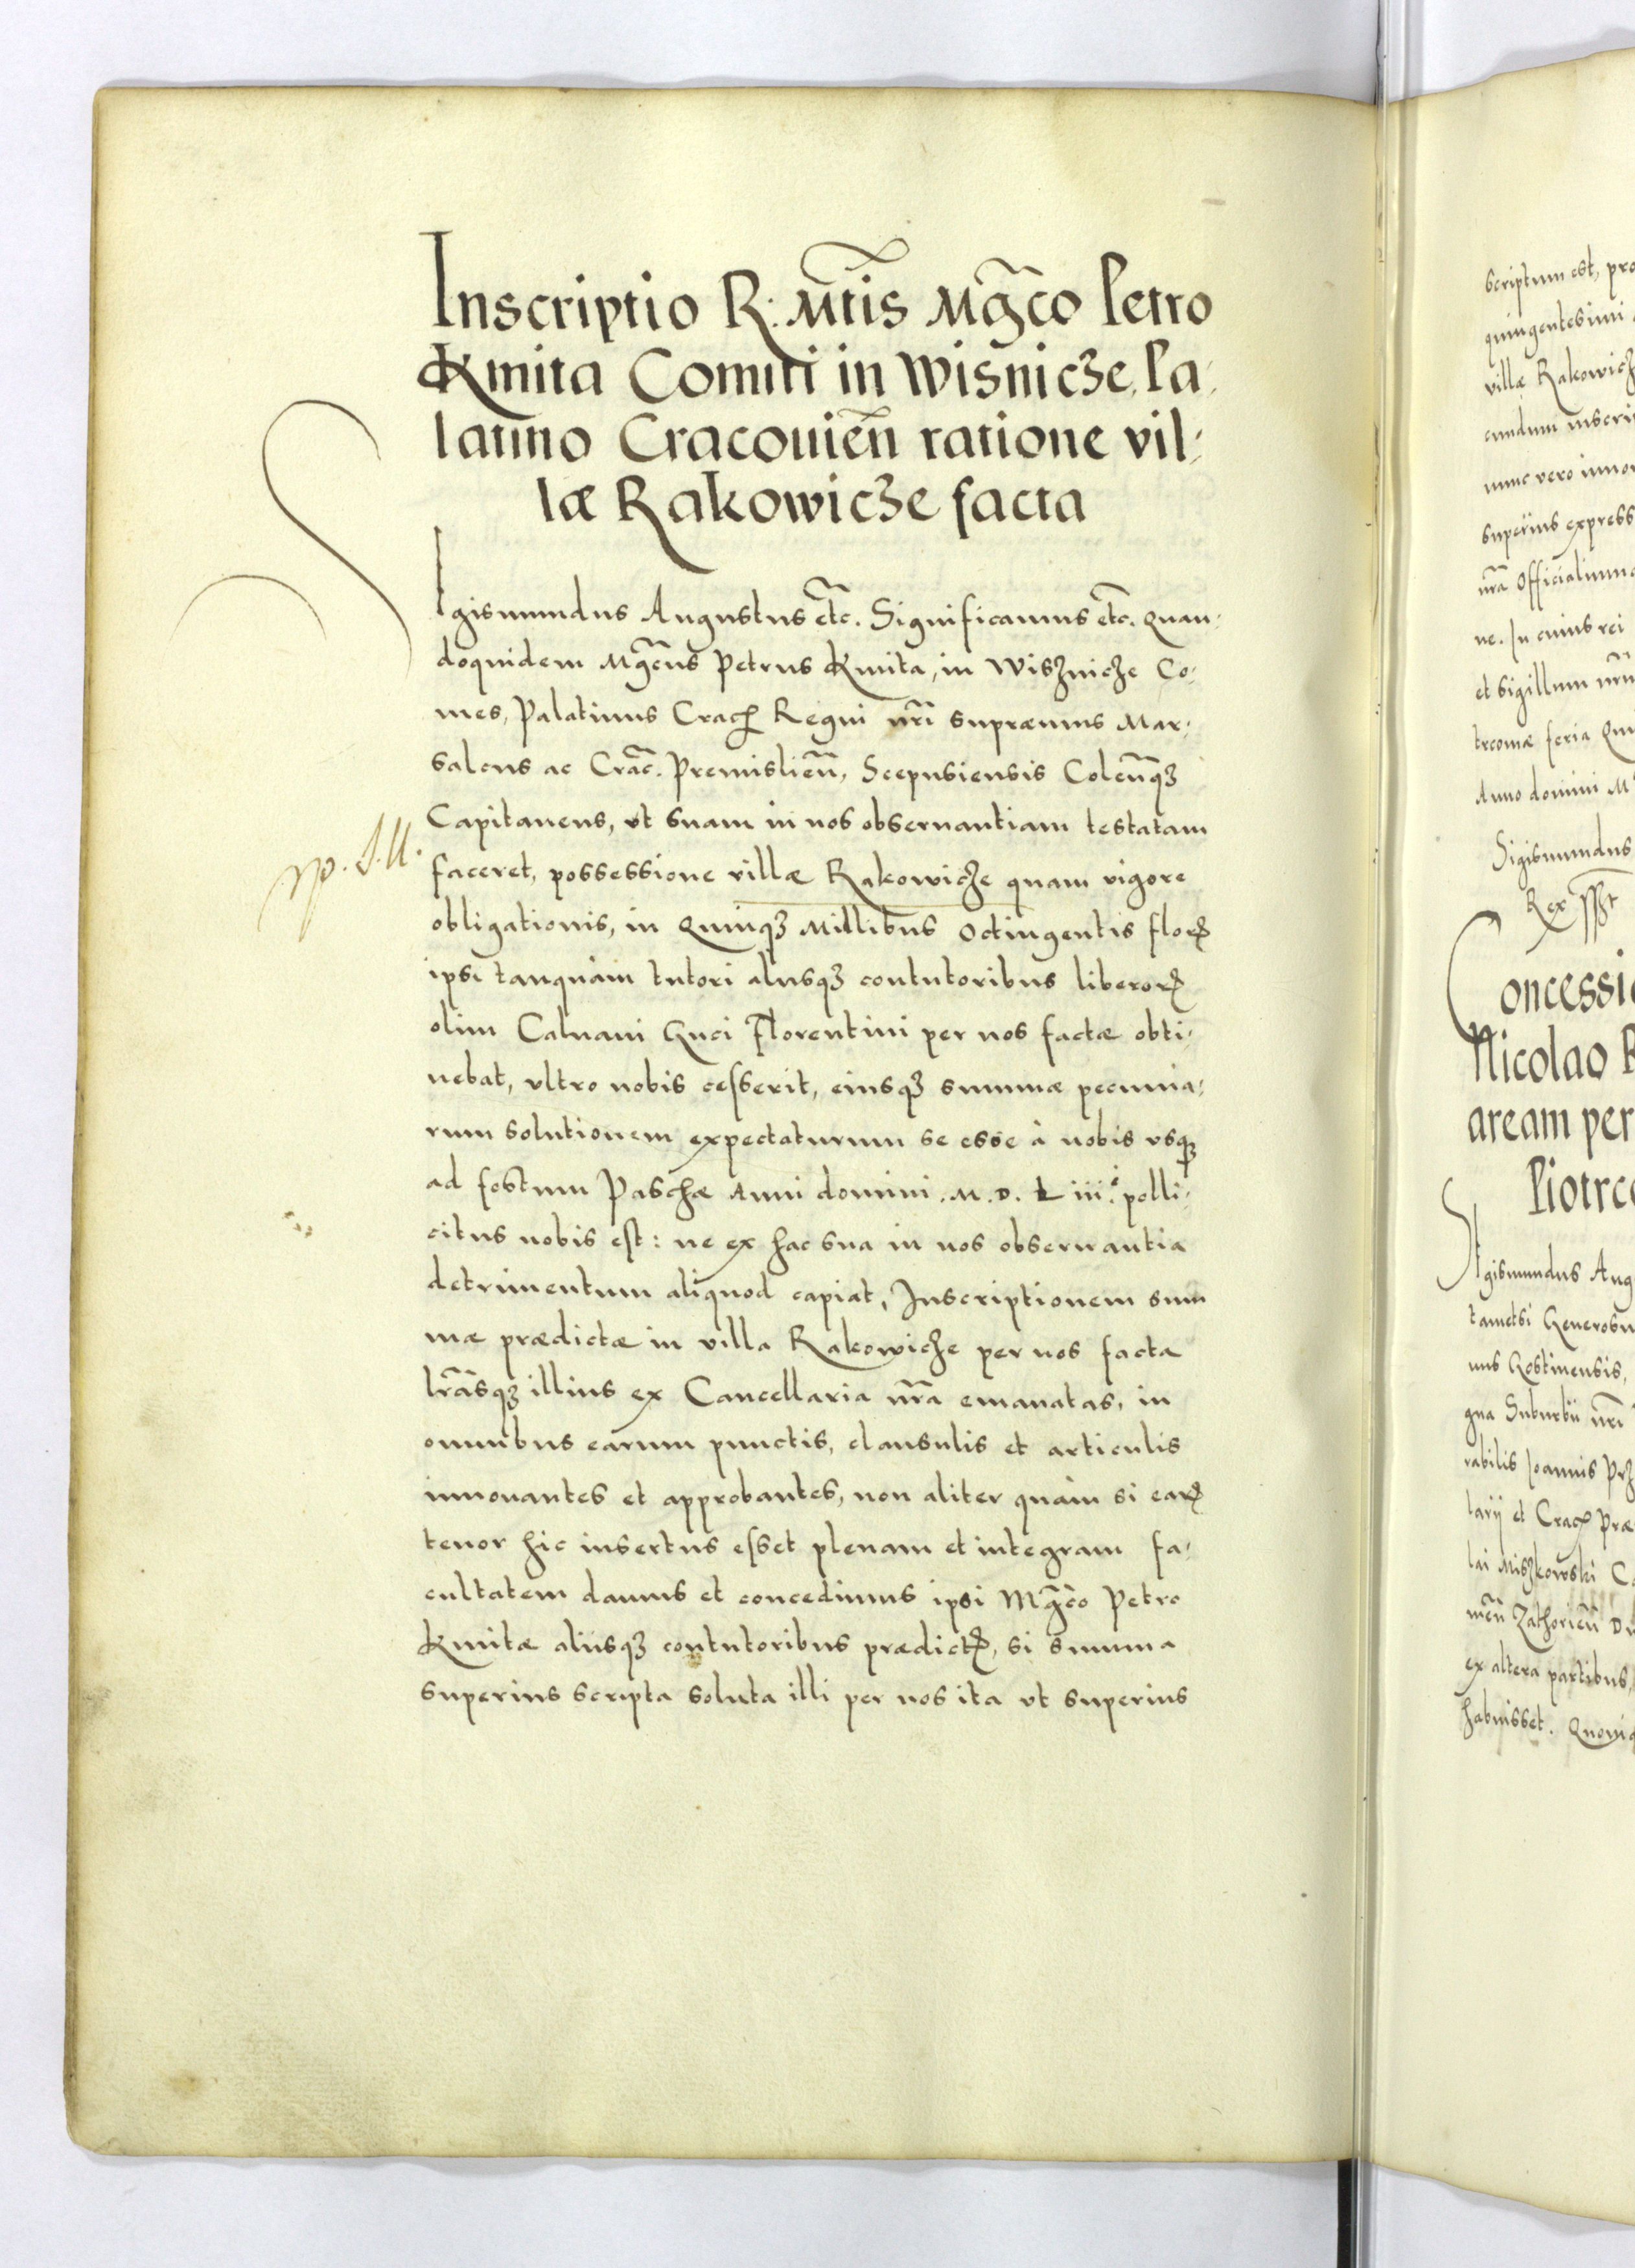 Inscriptio R: Mt̃is Mg̃co Petro
Kmita Comiti in Wisnicze, Pa-
latino Cracouien̄ ratione vil-
læ Rakowicze facta
Sigismundus Augustus etc̃. Significamus etc̃. Quan-
doquidem Mg̃cus Petrus Kmita, in Wisznicze Co-
mes, Palatinus Cracꝭ Regni nr̃i supræmus Mar-
salcus ac Crac̃. Premislien̄, Scepusiensis Colen̄qꝫ
Capitaneus, vt suam in nos obseruantiam testatam
faceret, possessione villæ Rakowicze quam vigore
obligationis, in Quinqꝫ Millibus Octingentis florꝭ
ipsi tanquàm tutori aliisqꝫ contutoribus liberorꝭ
olim Caluani Guci Florentini per nos factæ obti-
nebat, vltro nobis cesserit, eiusqꝫ summæ pecunia-
rum solutionem expectaturum se esse à nobis vsqꝫ
ad festum Paschæ Anni domini .M.D.Liii. polli-
citus nobis est: ne ex hac sua in nos obseruantia
detrimentum aliquod capiat, Inscriptionem sum
mæ prædictæ in villa Rakowicze per nos facta
lr̃asqꝫ illius ex Cancellaria nr̃a emanatas, in
omnibus earum punctis, clausulis et articulis
innouantes et approbantes, non aliter quàm si earꝭ
tenor hic insertus esset plenam et integram fa-
cultatem damus et concedimus ipsi Mg̃co Petro
Kmitæ aliisqꝫ contutoribus prædictꝭ, si summa
superius scripta soluta illi per nos ita vt superius
scriptum est, pro
quingentesimi
villæ Rakowicz
cundum inscri
nunc vero inno
superius express
nr̃a Officialium
ne. In cuius rei
et sigillum nr̃u
trcouiæ feria Qui
Anno domini M
Sigismundus
Rex
Concessio
Nicolao
aream per
Piotrco
Sigismundus Aug
tametsi Generosu
nus Gostinensis,
gna Suburbii nr̃i
rabilis Joannis Prz
tarij et Cracꝭ Præ
lai Miszkowski Ca
men̄ Zathorien̄
ex altera partibus,
habuisset. Quoniā